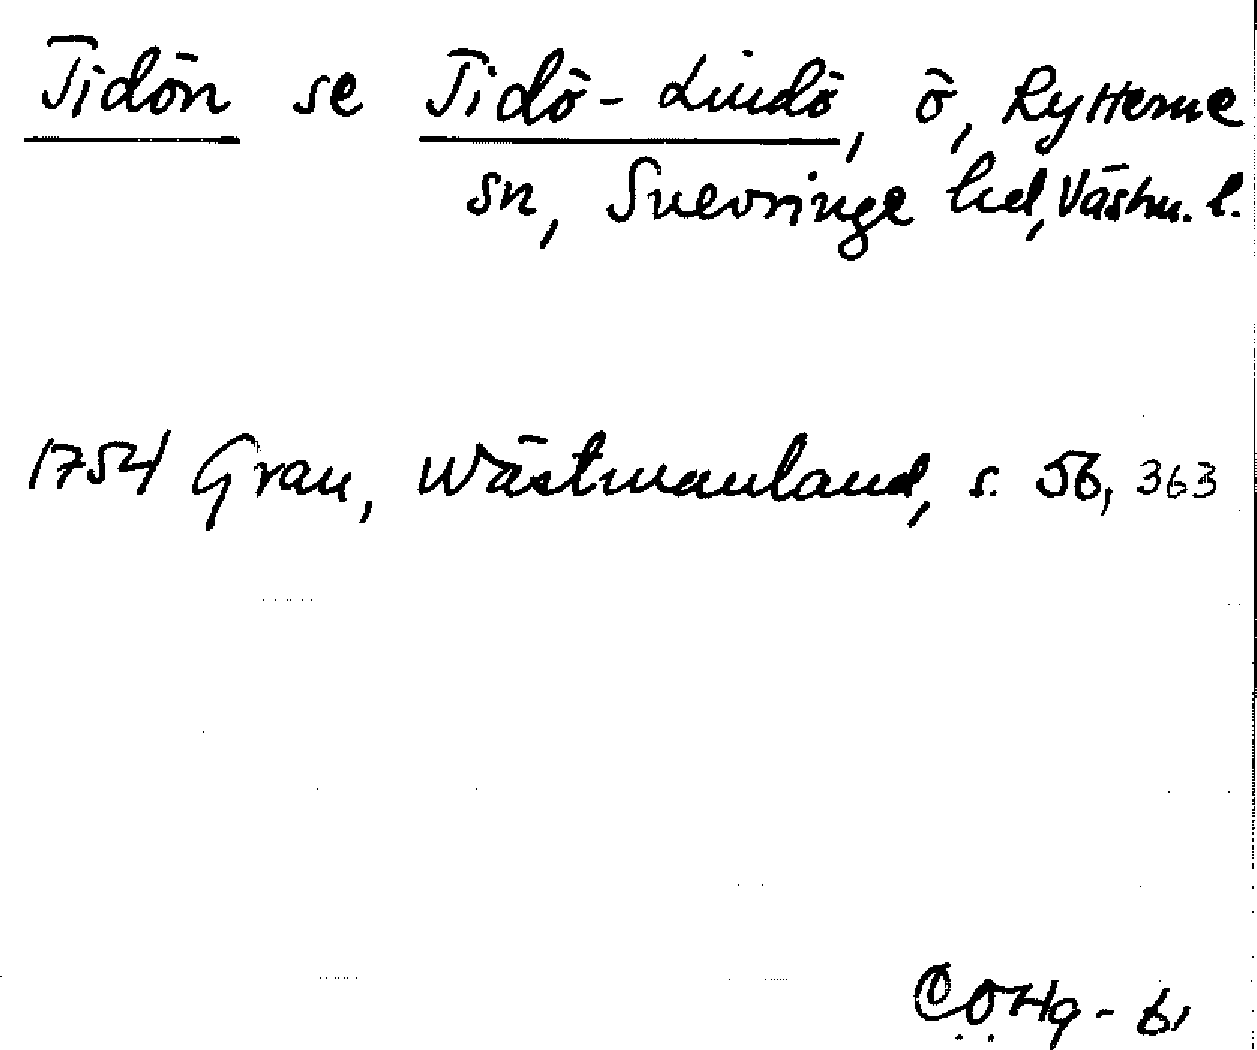 Tidön se Tidö-Lindö, ö, Rytterne
sn, Snevringe hd, Västm. l.
1754 Grau, Wästmanland, s. 56, 363